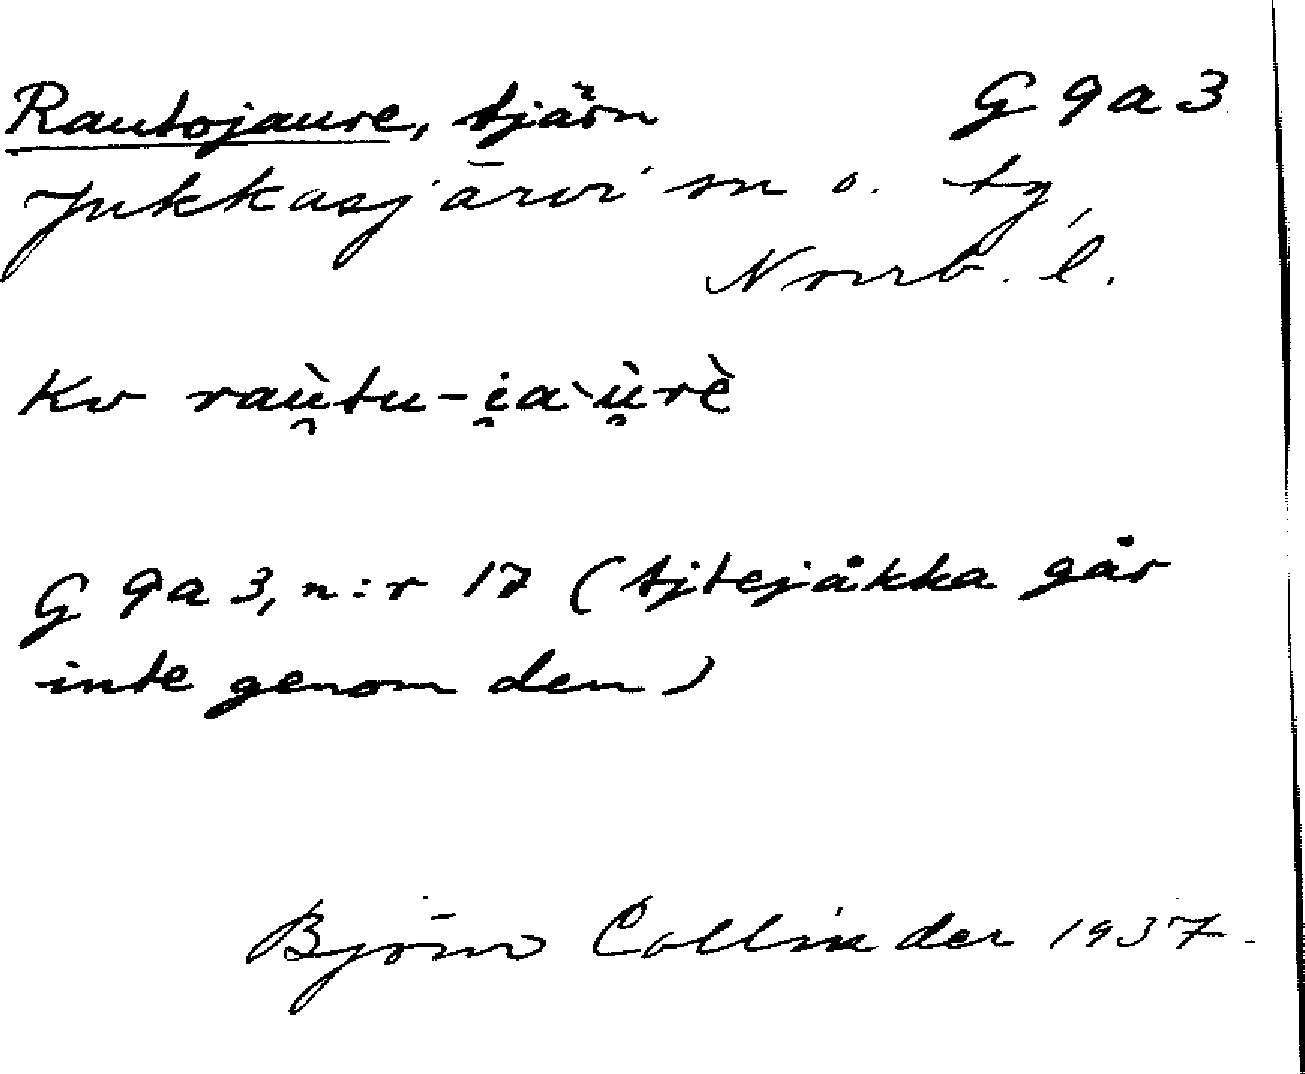 Rautojaure, tjärn G 9 a 3
Jukkasjärvi sn o. tg,
Norrb. l.
Kv raù̯tu-i̯a`ù̯rè
G 9a 3, n:r 17 (tjtejåkka går
inte genom den)
Björn Collinder 1937.